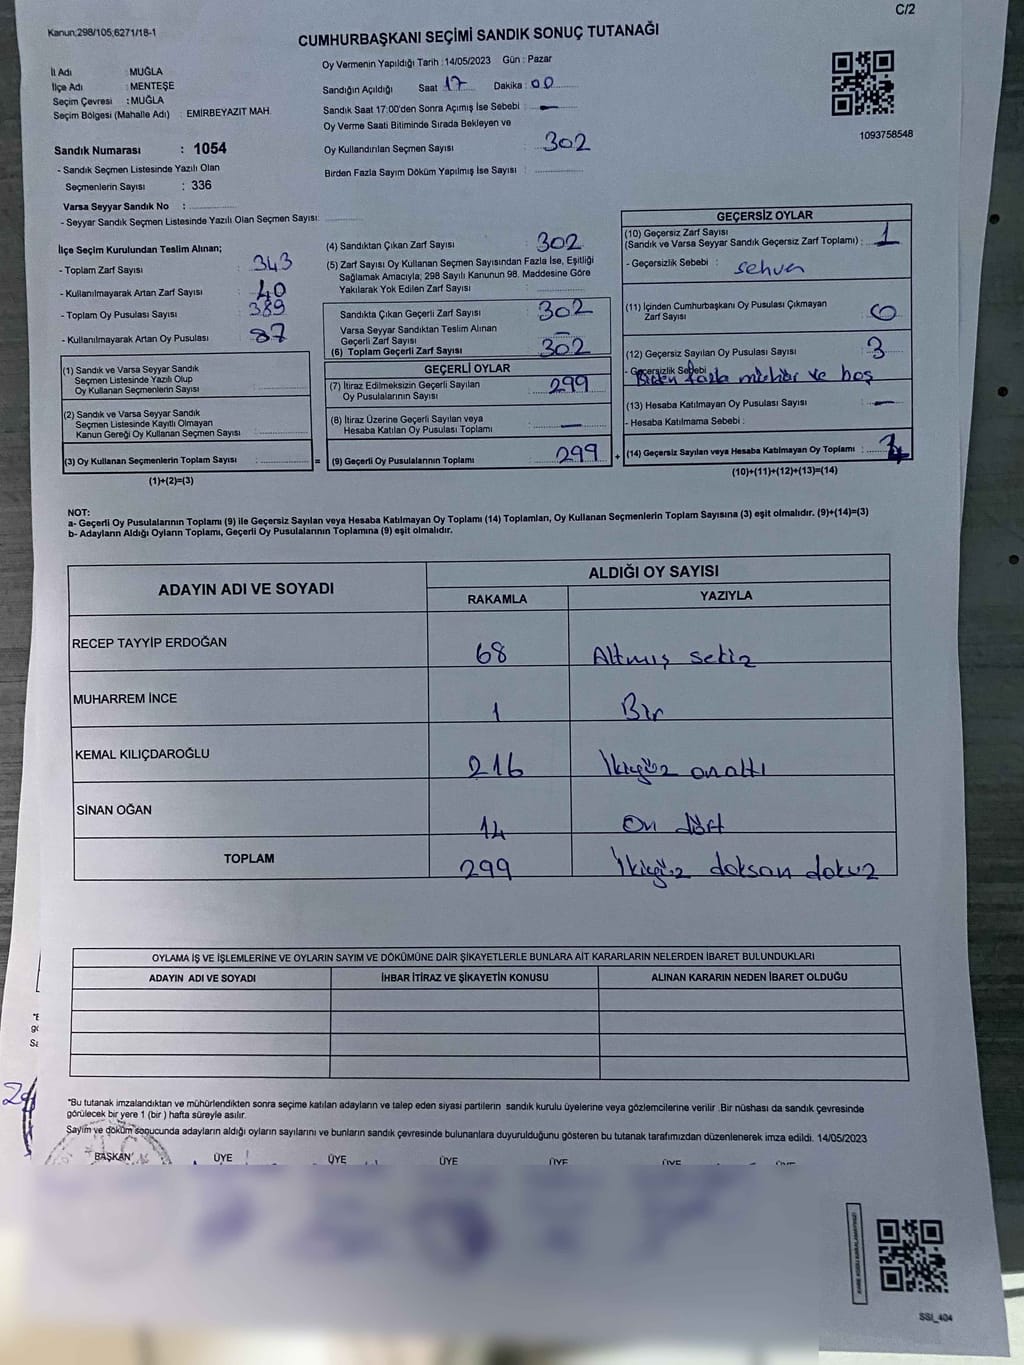 C/2
Kanun;298/105;6271/18-1
CUMHURBAŞKANI SEÇİMİ SANDIK SONUÇ TUTANAĞI
İl Adı : MUĞLA
İlçe Adı : MENTEŞE
Seçim Çevresi : MUĞLA
Seçim Bölgesi (Mahalle Adı) : EMİRBEYAZIT MAH.
Oy Vermenin Yapıldığı Tarih : 14/05/2023 Gün : Pazar
Sandığın Açıldığı Saat 17 Dakika : 00
Sandık Saat 17:00'den Sonra Açımış İse Sebebi : —
Oy Verme Saati Bitiminde Sırada Bekleyen ve
Oy Kullandırılan Seçmen Sayısı : 302
Birden Fazla Sayım Döküm Yapılmış İse Sayısı :
1093758548
Sandık Numarası : 1054
- Sandık Seçmen Listesinde Yazılı Olan
Seçmenlerin Sayısı : 336
Varsa Seyyar Sandık No :
- Seyyar Sandık Seçmen Listesinde Yazılı Olan Seçmen Sayısı:
İlçe Seçim Kurulundan Teslim Alınan;
- Toplam Zarf Sayısı : 343
- Kullanılmayarak Artan Zarf Sayısı : 40
- Toplam Oy Pusulası Sayısı : 389
- Kullanılmayarak Artan Oy Pusulası : 87
(1) Sandık ve Varsa Seyyar Sandık
Seçmen Listesinde Yazılı Olup
Oy Kullanan Seçmenlerin Sayısı :
(2) Sandık ve Varsa Seyyar Sandık
Seçmen Listesinde Kayıtlı Olmayan
Kanun Gereği Oy Kullanan Seçmen Sayısı :
(3) Oy Kullanan Seçmenlerin Toplam Sayısı : =
(1)+(2)=(3)
(4) Sandıktan Çıkan Zarf Sayısı : 302
(5) Zarf Sayısı Oy Kullanan Seçmen Sayısından Fazla İse, Eşitliği
Sağlamak Amacıyla; 298 Sayılı Kanunun 98. Maddesine Göre
Yakılarak Yok Edilen Zarf Sayısı :
Sandıkta Çıkan Geçerli Zarf Sayısı : 302
Varsa Seyyar Sandıktan Teslim Alınan
Geçerli Zarf Sayısı : —
(6) Toplam Geçerli Zarf Sayısı : 302
GEÇERLİ OYLAR
(7) İtiraz Edilmeksizin Geçerli Sayılan
Oy Pusulalarının Sayısı : 299
(8) İtiraz Üzerine Geçerli Sayılan veya
Hesaba Katılan Oy Pusulası Toplamı : —
(9) Geçerli Oy Pusulalarının Toplamı : 299 +
GEÇERSİZ OYLAR
(10) Geçersiz Zarf Sayısı
(Sandık ve Varsa Seyyar Sandık Geçersiz Zarf Toplamı) : 1
- Geçersizlik Sebebi : sehven
(11) İçinden Cumhurbaşkanı Oy Pusulası Çıkmayan
Zarf Sayısı : 0
(12) Geçersiz Sayılan Oy Pusulası Sayısı : 3
- Geçersizlik Sebebi : Birden fazla mühür ve boş
(13) Hesaba Katılmayan Oy Pusulası Sayısı : —
- Hesaba Katılmama Sebebi :
(14) Geçersiz Sayılan veya Hesaba Katılmayan Oy Toplamı :
(10)+(11)+(12)+(13)=(14)
NOT:
a- Geçerli Oy Pusulalarının Toplamı (9) ile Geçersiz Sayılan veya Hesaba Katılmayan Oy Toplamı (14) Toplamları, Oy Kullanan Seçmenlerin Toplam Sayısına (3) eşit olmalıdır. (9)+(14)=(3)
b- Adayların Aldığı Oyların Toplamı, Geçerli Oy Pusulalarının Toplamına (9) eşit olmalıdır.
ADAYIN ADI VE SOYADI
ALDIĞI OY SAYISI
RAKAMLA YAZIYLA
RECEP TAYYİP ERDOĞAN 68 Altmış sekiz
MUHARREM İNCE 1 Bir
KEMAL KILIÇDAROĞLU 216 İkiyüz onaltı
SİNAN OĞAN 14 On dört
TOPLAM 299 İkiyüz doksan dokuz
OYLAMA İŞ VE İŞLEMLERİNE VE OYLARIN SAYIM VE DÖKÜMÜNE DAİR ŞİKAYETLERLE BUNLARA AİT KARARLARIN NELERDEN İBARET BULUNDUKLARI
ADAYIN ADI VE SOYADI İHBAR İTİRAZ VE ŞİKAYETİN KONUSU ALINAN KARARIN NEDEN İBARET OLDUĞU
*Bu tutanak imzalandıktan ve mühürlendikten sonra seçime katılan adayların ve talep eden siyasi partilerin sandık kurulu üyelerine veya gözlemcilerine verilir .Bir nüshası da sandık çevresinde
görülecek bir yere 1 (bir ) hafta süreyle asılır.
Sayım ve döküm sonucunda adayların aldığı oyların sayılarını ve bunların sandık çevresinde bulunanlara duyurulduğunu gösteren bu tutanak tarafımızdan düzenlenerek imza edildi. 14/05/2023
BAŞKAN ÜYE ÜYE ÜYE ÜYE ÜYE ÜYE
SSI_404